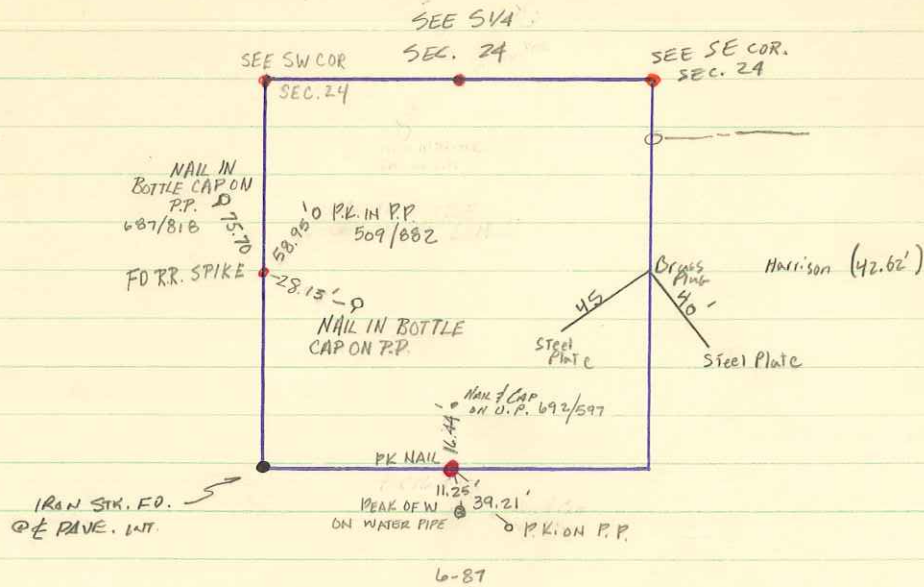 SEE S1/4
SEC. 24
SEE SW COR
SEC. 24
SEE SE COR.
SEC. 24
NAIL IN
BOTTLE CAP ON
P.P.
687/818
75.70
58.95'
P.K. IN P.P.
509/882
FD R.R. SPIKE
28.15'
NAIL IN BOTTLE
CAP ON P.P.
Brass
Plug
Harrison (42.62')
45
40'
Steel
Plate
Steel Plate
NAIL & CAP
ON U.P. 692/597
16.44'
PK NAIL
11.25'
39.21'
PEAK OF W
ON WATER PIPE
P.K. ON P.P.
IRON STK. FD.
@ ℄ PAVE. INT.
6-87